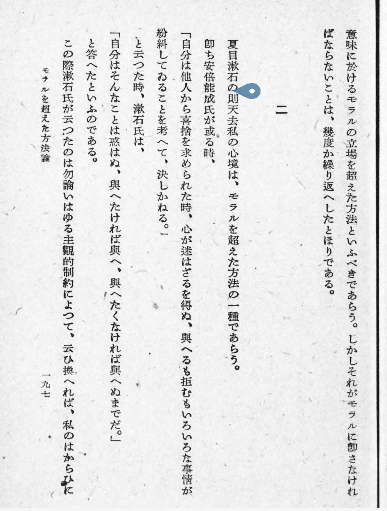 意味に於けるモラルの立場を超えた方法といふべきであらう。しかしそれがモラルに卽さなけれ
ばならないことは、幾度か繰り返へしたとほりである。
二
夏目漱石の則天去私の心境は、モラルを超えた方法の一種であらう。
卽ち安倍能成氏が或る時、
「自分は他人から喜捨を求められた時、心が迷はざるを得ぬ、與へるも拒むもいろいろな事情が
紛糾してゐることを考へて、決しかねる。」
と云つた時、漱石氏は、
「自分はそんなことは惑はぬ、與へたければ與へ、與へたくなければ與へぬまでだ。」
と答へたといふのである。
この際漱石氏が云つたのは勿論いはゆる主觀的制約によつて、云ひ換へれば、私のはからひに
モラルを超えた方法論
一九七